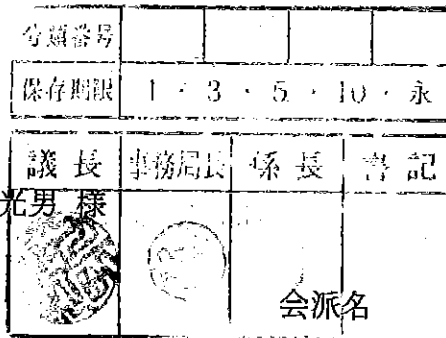 分類番号
保存期限 1・3・5・10・永
議長 事務局長 係長 書記
光男 様
会派名